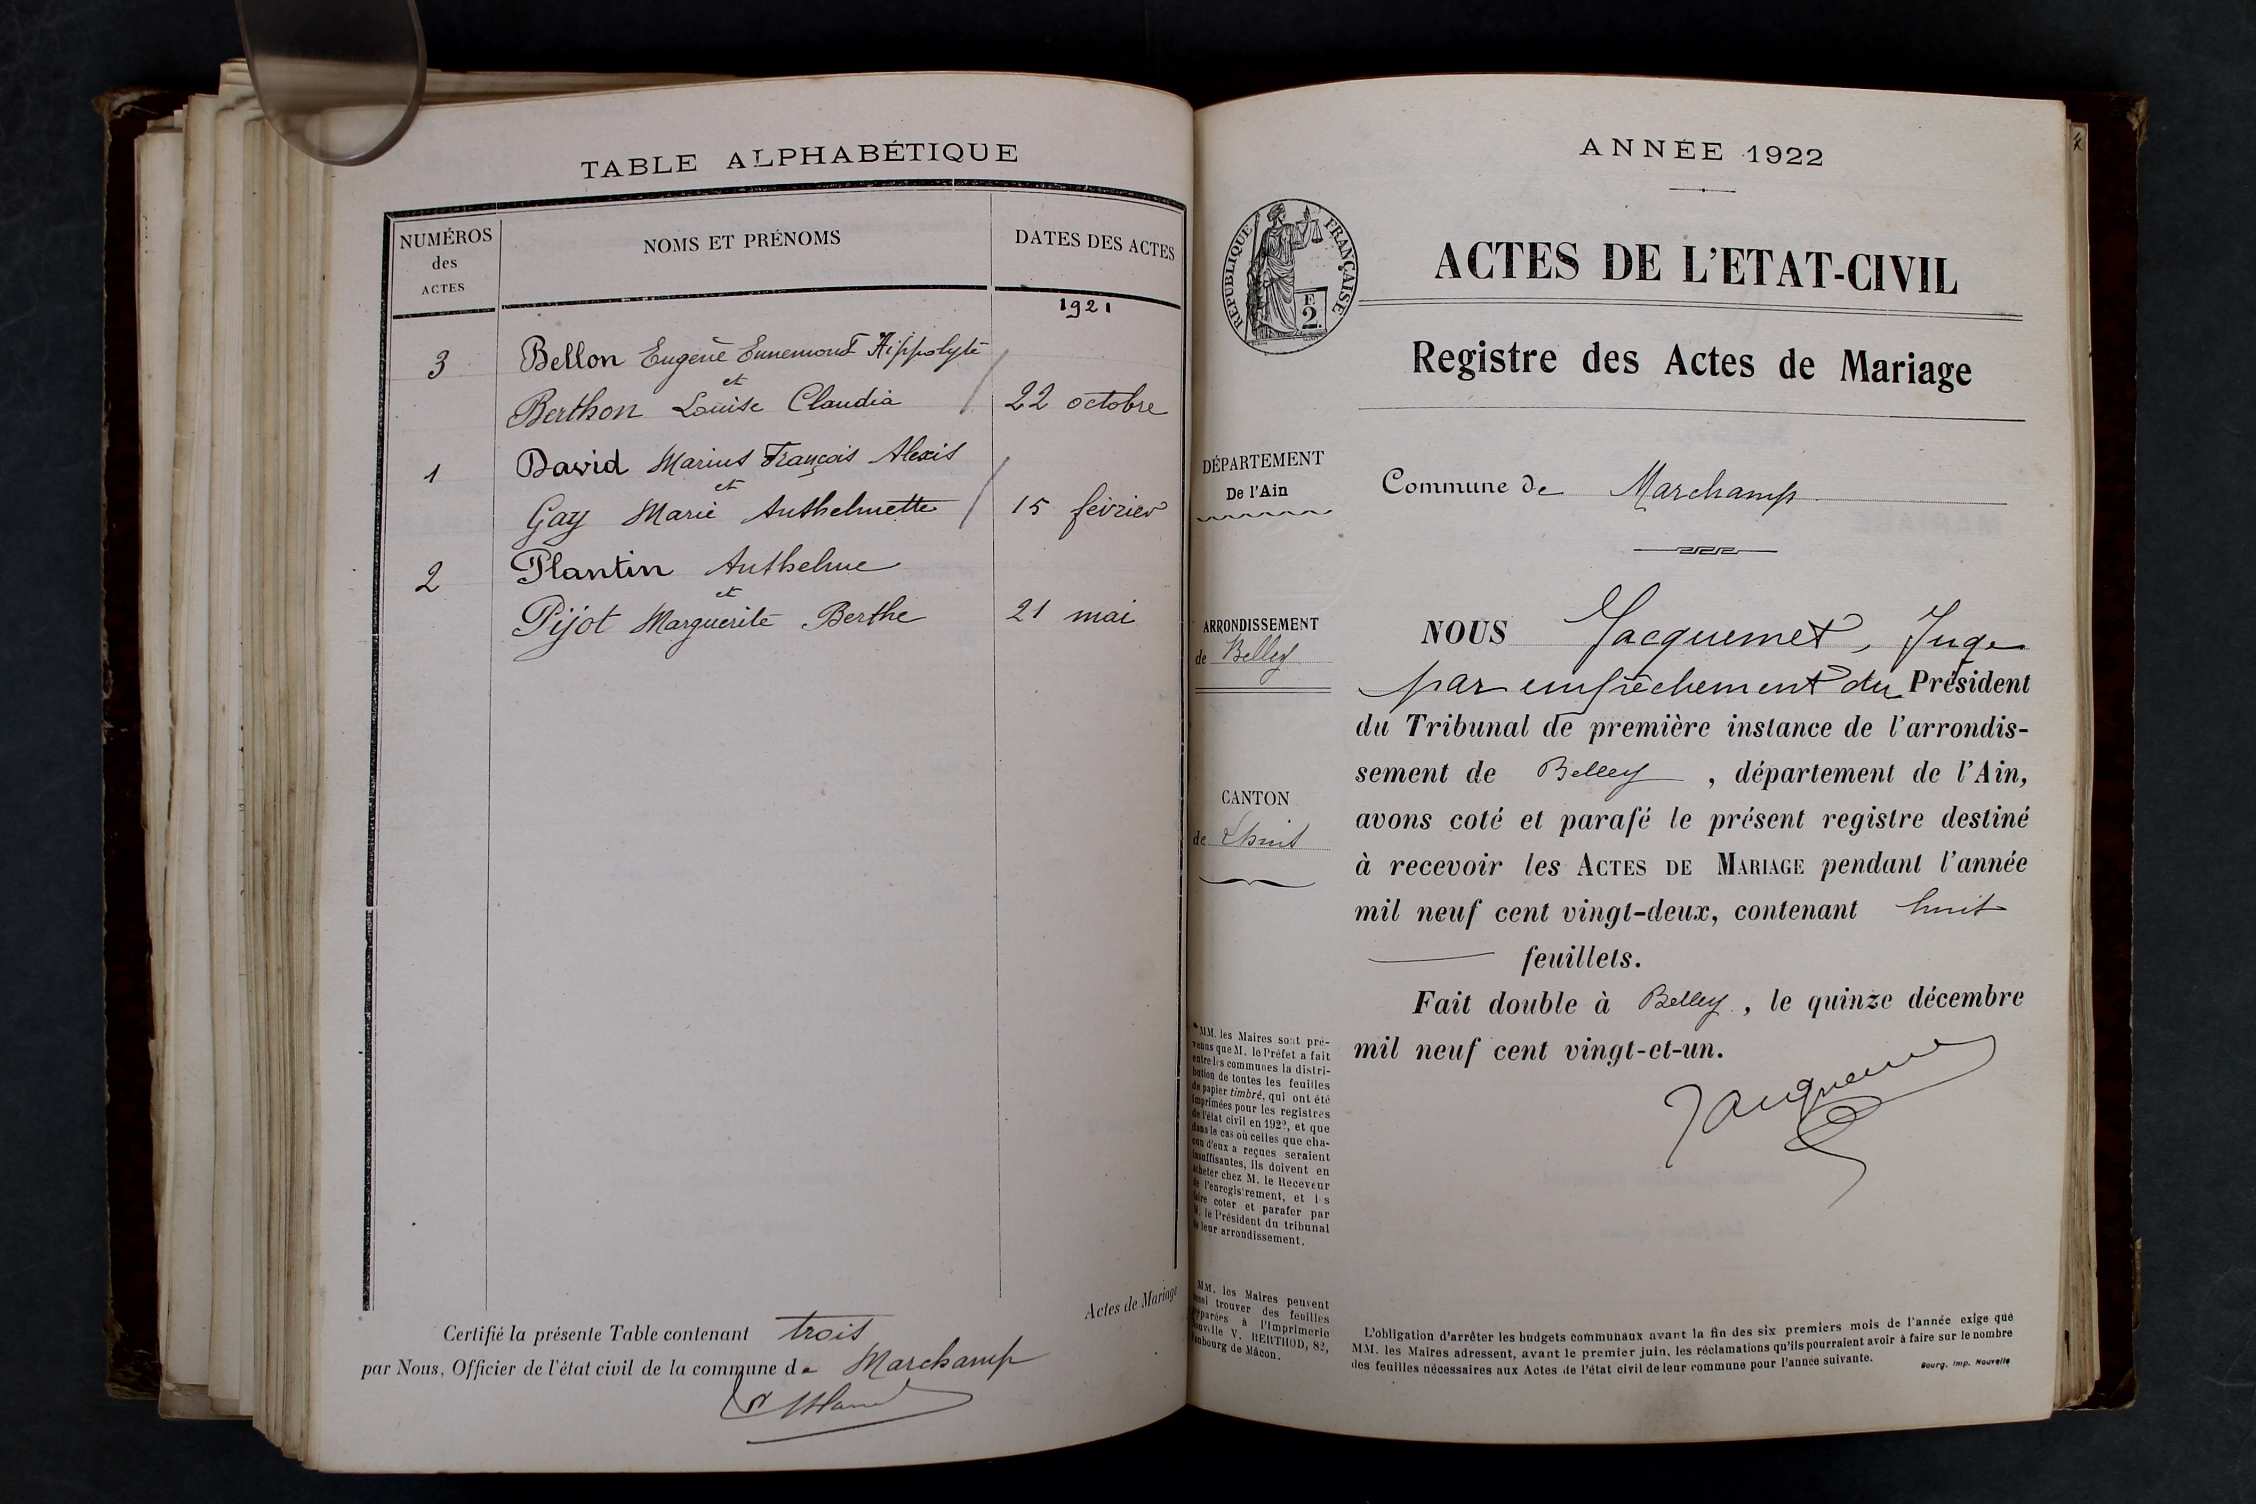 TABLE ALPHABÉTIQUE
NUMÉROS
des
ACTES
NOMS ET PRÉNOMS
DATES DES ACTES
1921
3 Bellon Eugène Ennemond Hippolyte
et
Berthon Louise Claudia 22 octobre
1 David Marius François Alexis
et
Gay Marie Anthelmette 15 février
2 Plantin Anthelme
et
Pijot Marguerite Berthe 21 mai
Actes de Mariage
Certifié la présente Table contenant trois
par Nous, Officier de l'état civil de la commune de Marchamp
ANNÉE 1922
RÉPUBLIQUE FRANÇAISE
E
2.
ACTES DE L'ETAT-CIVIL
Registre des Actes de Mariage
DÉPARTEMENT
De l'Ain
Commune de Marchamp
ARRONDISSEMENT
de Belley
CANTON
de Lhuis
NOUS Jacquemet, Juge
par empêchement du Président
du Tribunal de première instance de l'arrondis-
sement de Belley, département de l'Ain,
avons coté et parafé le présent registre destiné
à recevoir les ACTES DE MARIAGE pendant l'année
mil neuf cent vingt-deux, contenant huit
feuillets.
Fait double à Belley, le quinze décembre
mil neuf cent vingt-et-un.
Jacquemet
MM. les Maires sont pré-
venus que M. le Préfet a fait
entre les communes la distri-
bution de toutes les feuilles
de papier timbré, qui ont été
imprimées pour les registres
de l'état civil en 1922, et que
dans le cas où celles que cha-
cun d'eux a reçues seraient
insuffisantes, ils doivent en
acheter chez M. le Receveur
de l'enregistrement, et les
faire coter et parafer par
M. le Président du tribunal
de leur arrondissement.
MM. les Maires peuvent
aussi trouver des feuilles
préparées à l'Imprimerie
Nouvelle V. BERTHOD, 82,
faubourg de Mâcon.
L'obligation d'arrêter les budgets communaux avant la fin des six premiers mois de l'année exige que
MM. les Maires adressent, avant le premier juin, les réclamations qu'ils pourraient avoir à faire sur le nombre
des feuilles nécessaires aux Actes de l'état civil de leur commune pour l'année suivante.
Bourg. Imp. Nouvelle